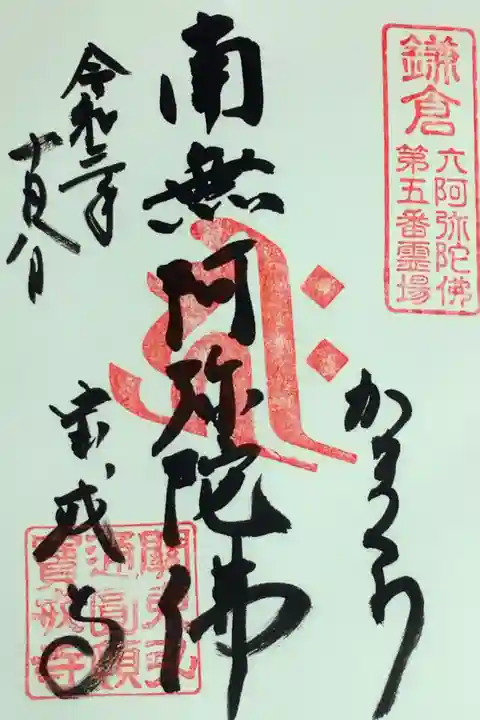 鎌倉
六阿弥陀佛
第五番霊場
かまくら
南無阿弥陀佛
令和二年
十月八日
宝戒寺
關東弘
通圓頓
寶戒寺